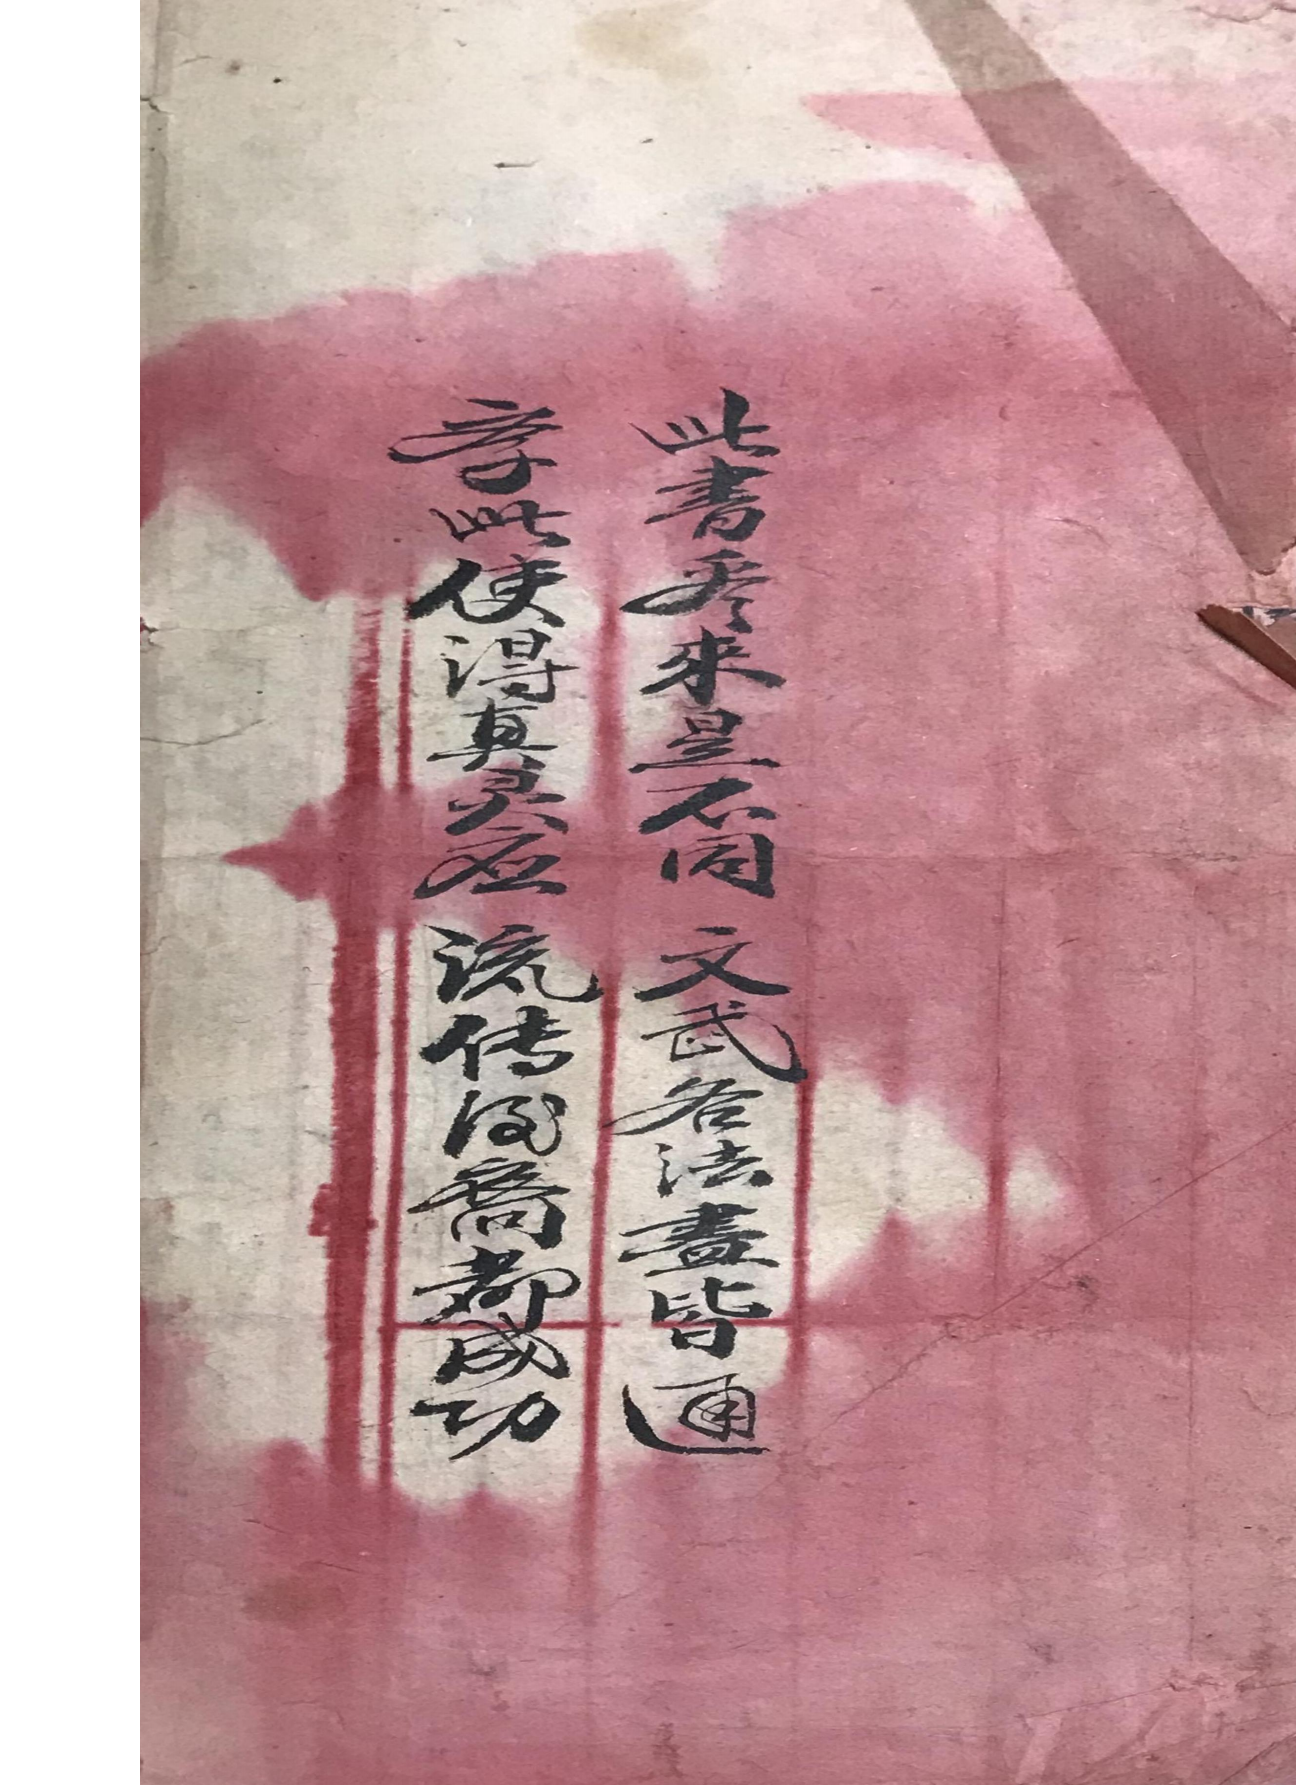 此書看來是不同 文武各法盡皆通
学此使得真灵应 流传後裔都成功